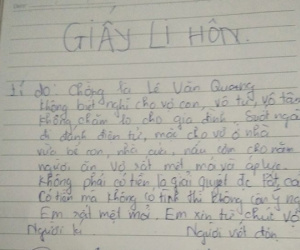 GIẤY LI HÔN.
Lí do: Chồng là Lê Văn Quang
không biết nghĩ cho vợ con, vô tư, vô tâm
không chăm lo cho gia đình. Suốt ngà
đi đánh điện tử, mặc cho vợ ở nhà
vừa bế con, nhà cửa, nấu cơm cho năm
người ăn. Vợ rất mệt mỏ và áp lực.
Không phải có tiền là giải quyết đc tất cả
Có tiền mà không có tình thì không còn ý ng
Em rất mệt mỏi. Em xin từ chức vợ
Người kí Người viết đơn